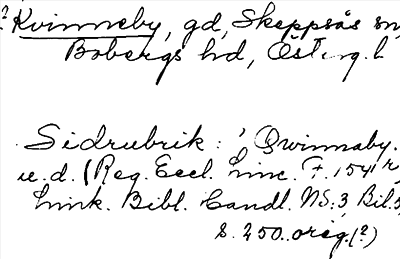 ? Kvinneby, gd, Skeppsås sn,
Bobergs hd, Österg. l
Sidrubrik: ' Qwinnaby.
u.d. (Reg. Eccl. Linc. F. 1541 r,
Link. Bibl. Handl. NS: 3, Bil. 5,
s. 250. orig. (?)